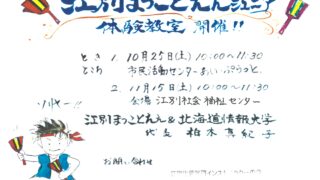 江別まっことええジュニア
体験教室 開催!!
とき 1. 10月25日(土) 10:00〜11:30
ところ 市民活動センターあい・ぷらっと。
2. 11月15日(土) 10:00〜11:30
会場 江別社会福祉センター
ソーレー!!
江別まっことええ&北海道情報大学
代表 柏木真紀子
お問い合わせ